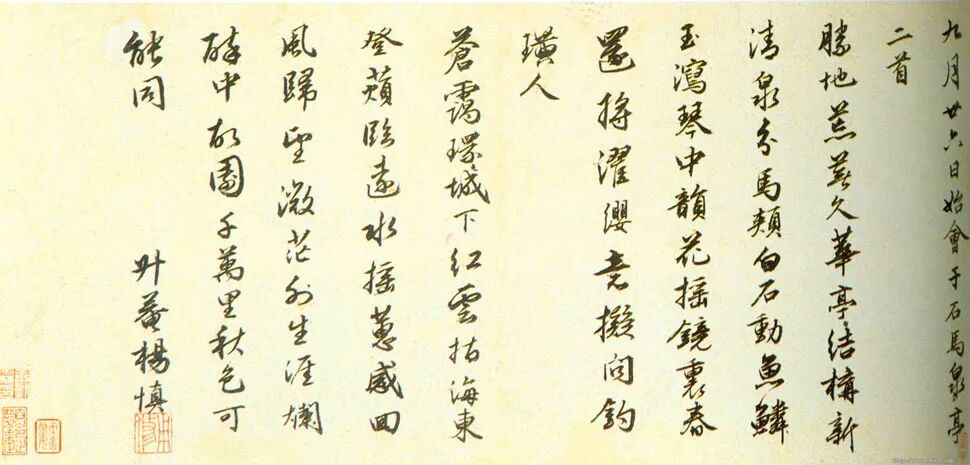 九月廿六日始會于石馬泉亭
二首
勝地荒蕪久華亭結構新
清泉分馬頰白石動魚鱗
玉瀉琴中韻花搖鏡裏春
還將濯纓意擬問釣
璜人
蒼靄環城下紅雲指海東
登蘋臨遠水搖蕙感回
風歸望微茫外生涯爛
醉中故園千萬里秋色可
能同 升菴楊慎